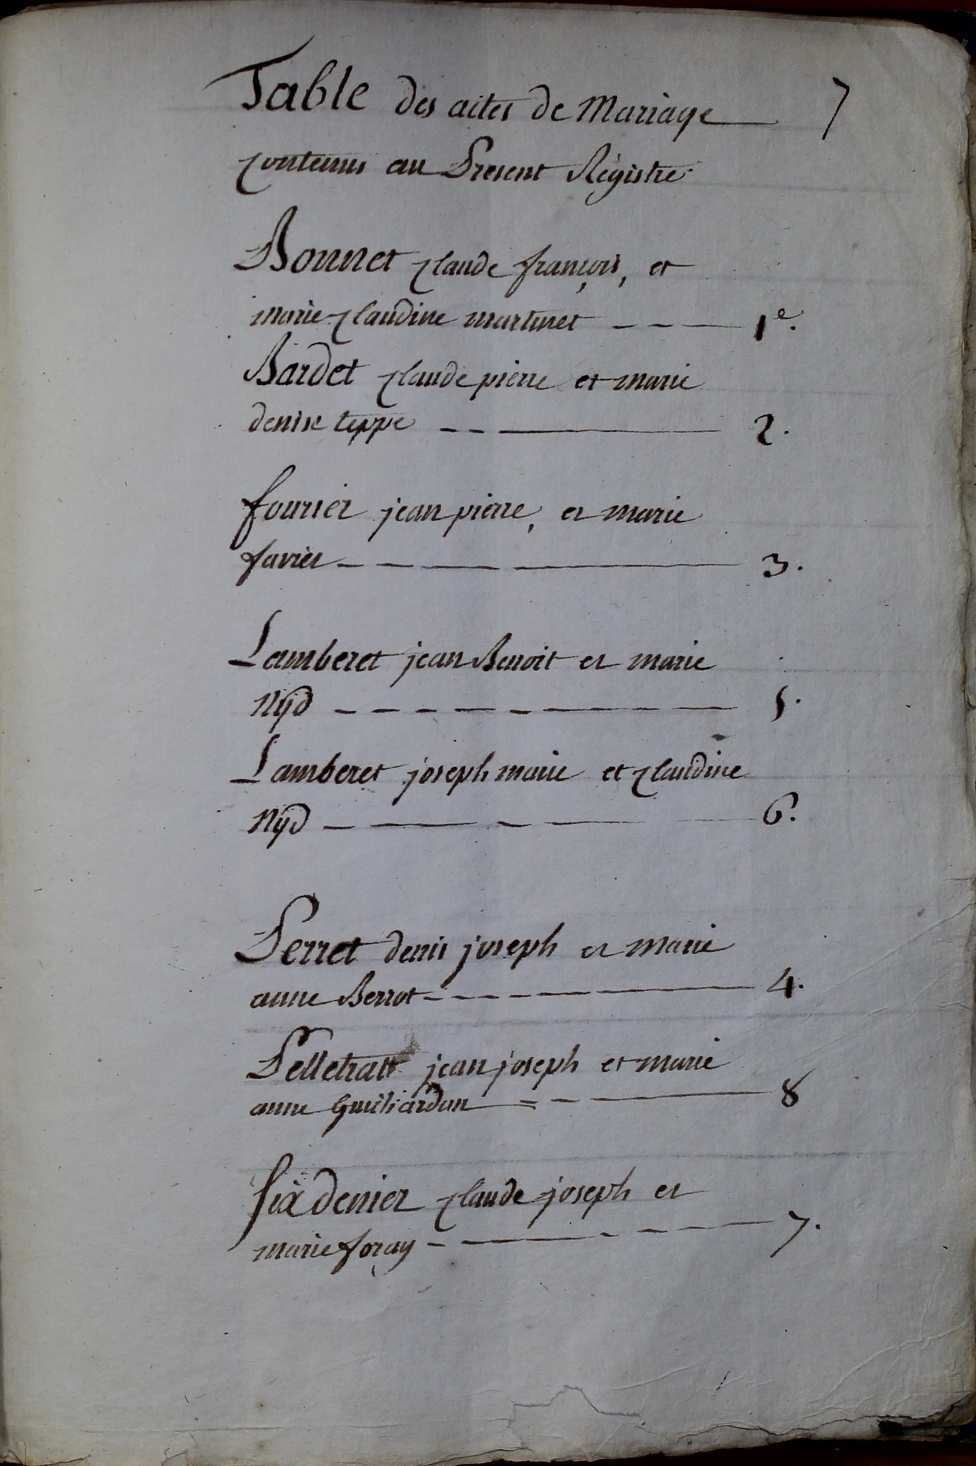 Table des actes de Mariage 7
Contenus au Present Régistre
Bonnet Claude françois, et
marie Claudine martinet - - - 1e.
Bardet Claude pierre et marie
denise teppe - - - 2.
fourier jean pierre, et marie
favier - - - 3.
Lamberet jean Benoit et marie
Nÿd - - - 5.
Lamberet joseph marie et Claudine
Nÿd - - - 6.
Perret denis joseph et marie
anne Berrot - - - 4.
jean joseph et marie
anne - - - 8
Six denier Claude joseph et
marie foray - - - 7.